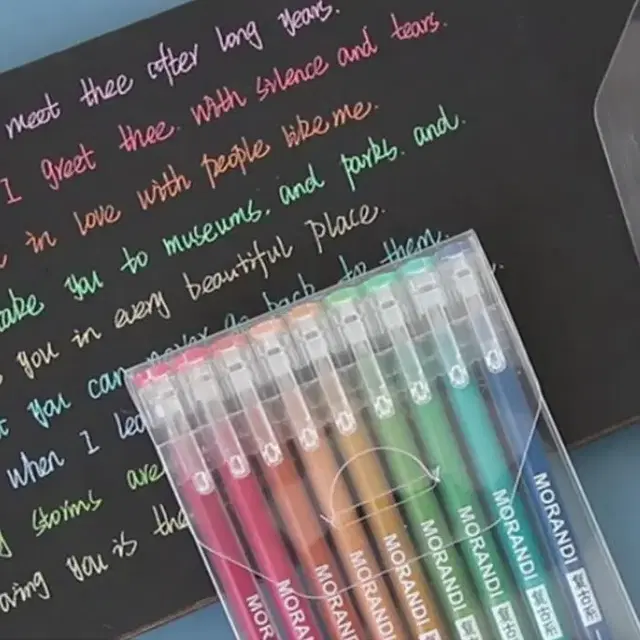 meet thee after long years.
I greet thee. with silence and tears.
in love with people like me.
take you to museums. and parks. and.
you in every beautiful place.
you can never go back to them
when I
storms are
you is the
MORANDI
MORANDI
MORANDI
MORANDI
MORANDI
MORANDI
MORANDI
MORANDI